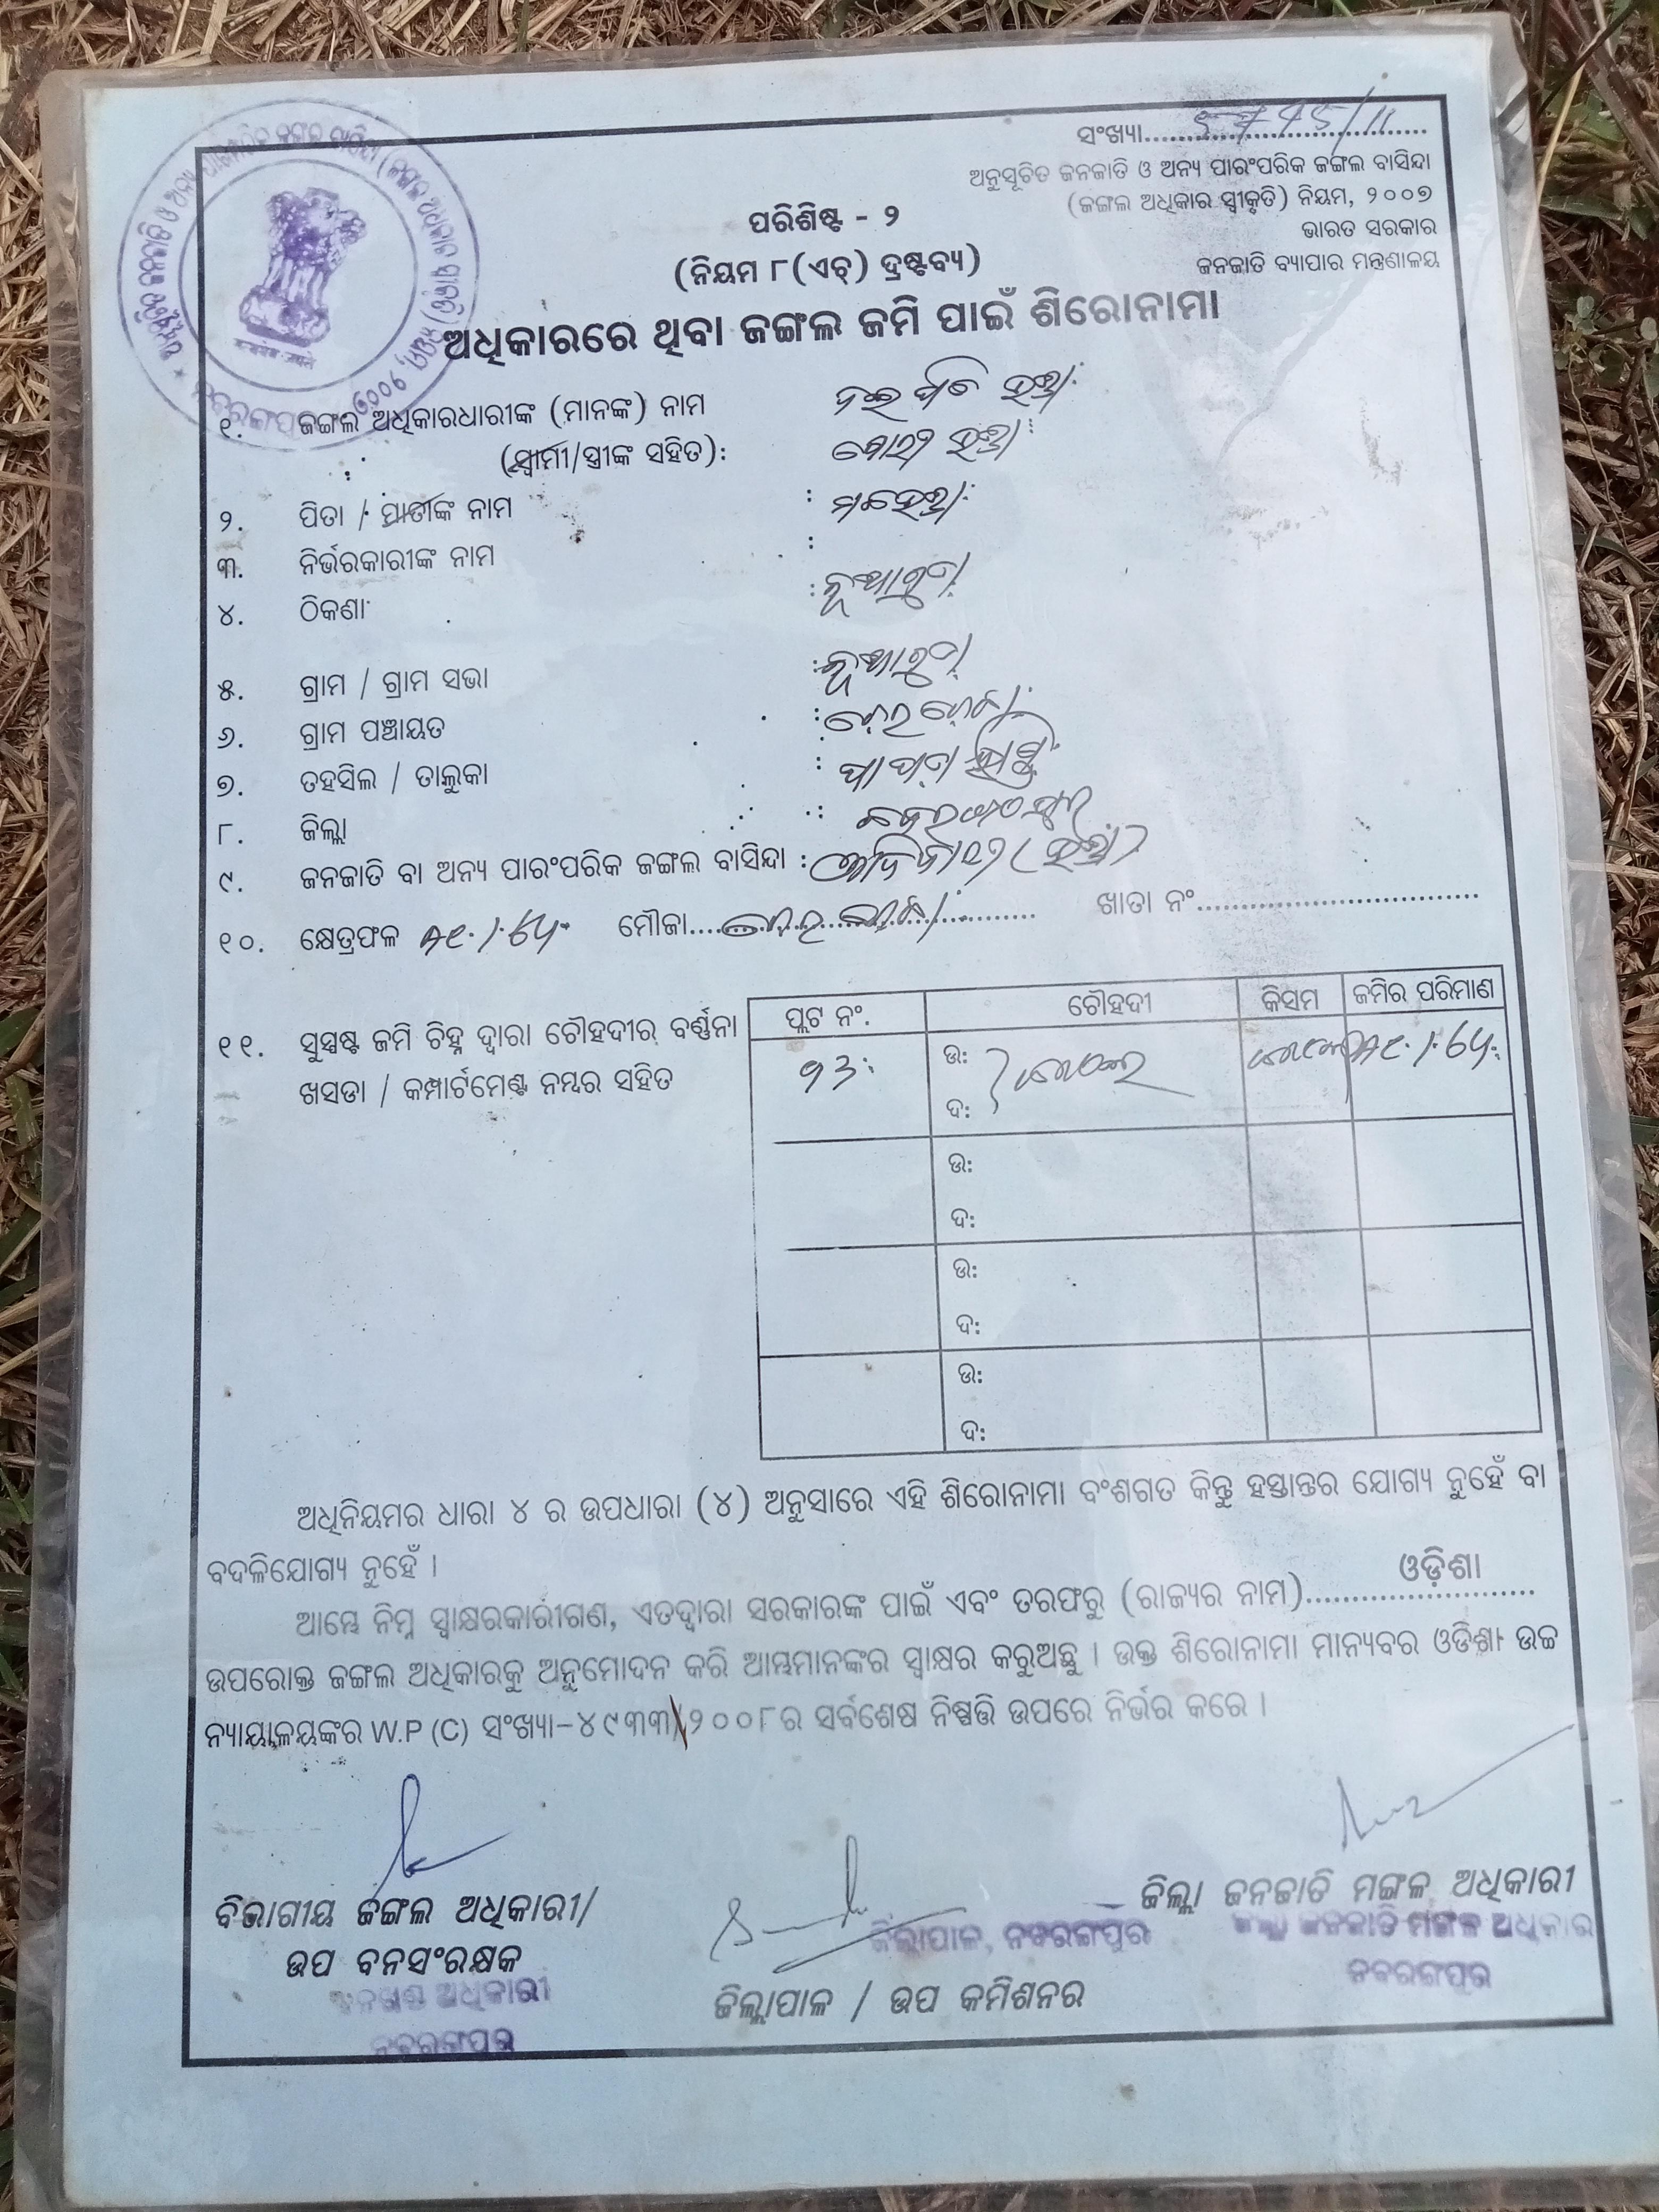 ସଂଖ୍ୟା....................................
ଅନୁସୂଚିତ ଜନଜାତି ଓ ଅନ୍ୟ ପାରଂପରିକ ଜଙ୍ଗଲ ବାସିନ୍ଦା
(ଜଙ୍ଗଲ ଅଧିକାର ସ୍ୱୀକୃତି) ନିୟମ, ୨୦୦୭
ଭାରତ ସରକାର
ଜନଜାତି ବ୍ୟାପାର ମନ୍ତ୍ରଣାଳୟ
ପରିଶିଷ୍ଟ - ୨
(ନିୟମ ୮(ଏଚ୍) ଦ୍ରଷ୍ଟବ୍ୟ)
ଅଧିକାରରେ ଥିବା ଜଙ୍ଗଲ ଜମି ପାଇଁ ଶିରୋନାମା
୧. ଜଙ୍ଗଲ ଅଧିକାରଧାରୀଙ୍କ (ମାନଙ୍କ) ନାମ
(ସ୍ୱାମୀ/ସ୍ତ୍ରୀଙ୍କ ସହିତ):
୨. ପିତା / ମାତାଙ୍କ ନାମ :
୩. ନିର୍ଭରକାରୀଙ୍କ ନାମ :
୪. ଠିକଣା : ନୂଆଗୁଡ଼ା
୫. ଗ୍ରାମ / ଗ୍ରାମ ସଭା : ନୂଆଗୁଡ଼ା
୬. ଗ୍ରାମ ପଞ୍ଚାୟତ :
୭. ତହସିଲ / ତାଲୁକା : ପାପଡ଼ାହାଣ୍ଡି
୮. ଜିଲ୍ଲା :
୯. ଜନଜାତି ବା ଅନ୍ୟ ପାରଂପରିକ ଜଙ୍ଗଲ ବାସିନ୍ଦା : ଆଦିବାସୀ
୧୦. କ୍ଷେତ୍ରଫଳ Ac.1.65 ମୌଜା.................................... ଖାତା ନଂ..............................
୧୧. ସୁସ୍ପଷ୍ଟ ଜମି ଚିହ୍ନ ଦ୍ୱାରା ଚୌହଦୀର ବର୍ଣ୍ଣନା
ଖସଡା / କମ୍ପାର୍ଟମେଣ୍ଟ ନମ୍ବର ସହିତ
ପ୍ଲଟ ନଂ. ଚୌହଦୀ କିସମ ଜମିର ପରିମାଣ
୨୩ ଉ: ଜଙ୍ଗଲ Ac.1.65
ଦ:
ଉ:
ଦ:
ଉ:
ଦ:
ଉ:
ଦ:
ଅଧିନିୟମର ଧାରା ୪ ର ଉପଧାରା (୪) ଅନୁସାରେ ଏହି ଶିରୋନାମା ବଂଶଗତ କିନ୍ତୁ ହସ୍ତାନ୍ତର ଯୋଗ୍ୟ ନୁହେଁ ବା
ବଦଳିଯୋଗ୍ୟ ନୁହେଁ ।
ଆମ୍ଭେ ନିମ୍ନ ସ୍ୱାକ୍ଷରକାରୀଗଣ, ଏତଦ୍ୱାରା ସରକାରଙ୍କ ପାଇଁ ଏବଂ ତରଫରୁ (ରାଜ୍ୟର ନାମ)......ଓଡ଼ିଶା......
ଉପରୋକ୍ତ ଜଙ୍ଗଲ ଅଧିକାରକୁ ଅନୁମୋଦନ କରି ଆମ୍ଭମାନଙ୍କର ସ୍ୱାକ୍ଷର କରୁଅଛୁ । ଉକ୍ତ ଶିରୋନାମା ମାନ୍ୟବର ଓଡିଶା ଉଚ୍ଚ
ନ୍ୟାୟାଳୟଙ୍କର W.P (C) ସଂଖ୍ୟା-୪୯୩୩/୨୦୦୮ର ସର୍ବଶେଷ ନିଷ୍ପତ୍ତି ଉପରେ ନିର୍ଭର କରେ ।
ବିଭାଗୀୟ ଜଙ୍ଗଲ ଅଧିକାରୀ/
ଉପ ବନସଂରକ୍ଷକ
ବନଖଣ୍ଡ ଅଧିକାରୀ
ନବରଙ୍ଗପୁର
ଜିଲ୍ଲାପାଳ, ନବରଙ୍ଗପୁର
ଜିଲ୍ଲାପାଳ / ଉପ କମିଶନର
ଜିଲ୍ଲା ଜନଜାତି ମଙ୍ଗଳ ଅଧିକାରୀ
ଜିଲ୍ଲା ଜନଜାତି ମଙ୍ଗଳ ଅଧିକାରୀ
ନବରଙ୍ଗପୁର